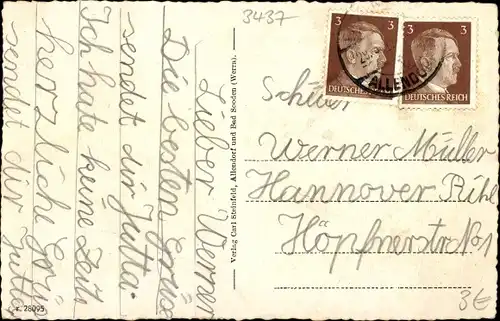 Lieber Werner
Die besten Grüße
sendet dir Jutta.
Ich hate keine Zeit
herzliche Grü
sendet dir Jutta
Nr. 28095
Verlag Carl Steinfeld, Allendorf und Bad Sooden (Werra).
3437
3 3
DEUTSCHES REICH
3 3
DEUTSCHES REICH
ALLENDO
Schüler
Werner Müller
Hannover Kühl
Höpfnerstr No 1
3€